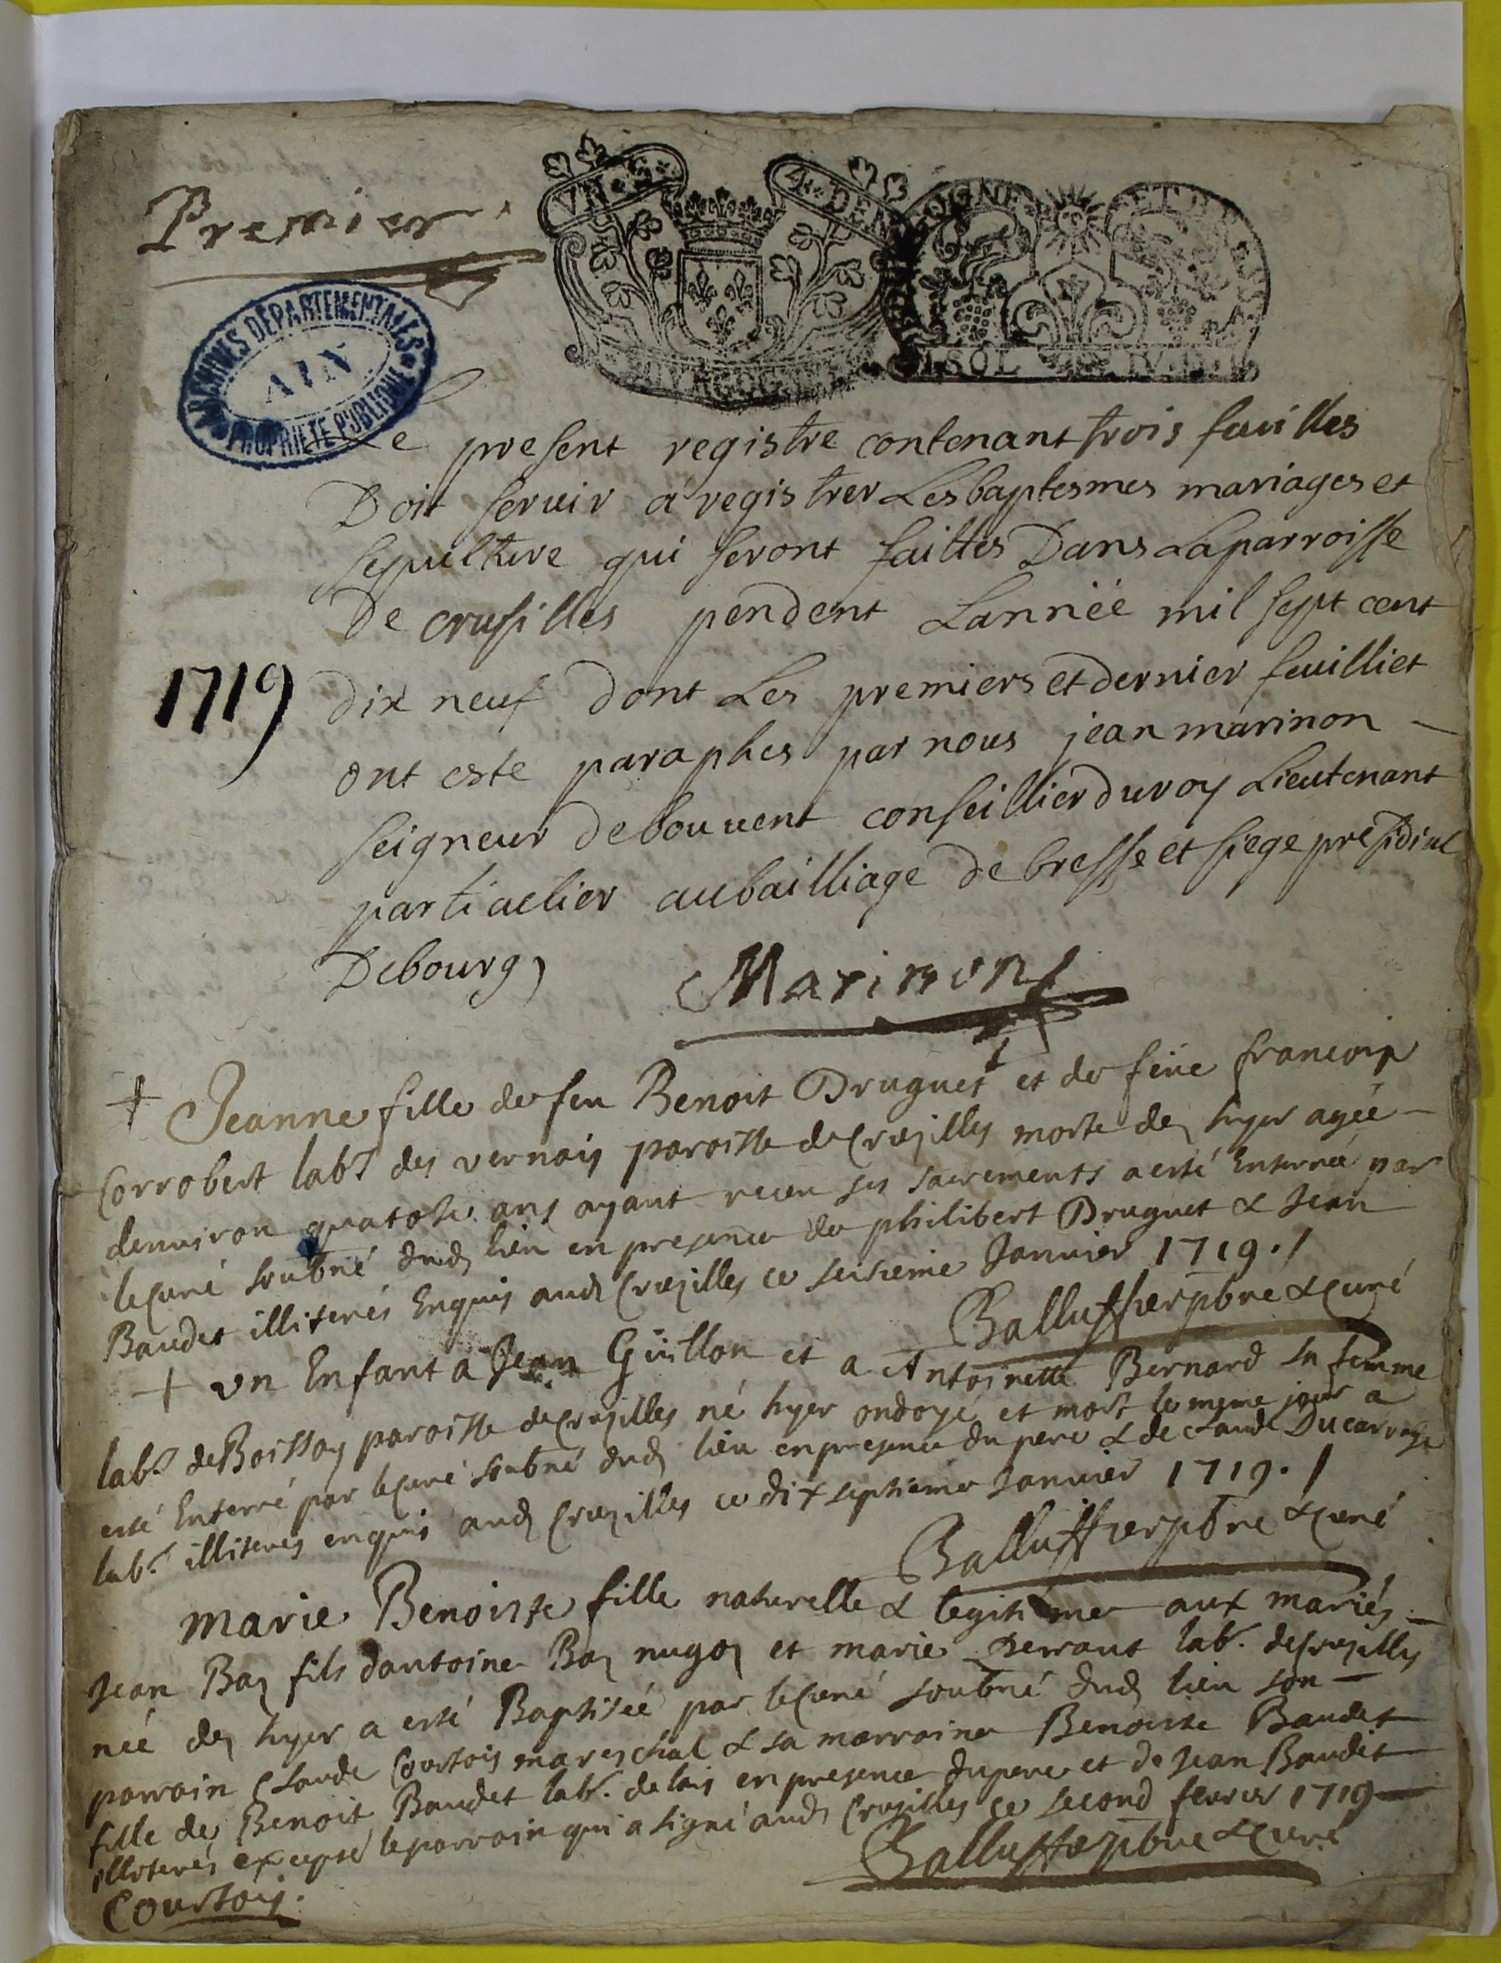 Premier
VN S
4. DEN
BOVRGOGNE
1 SOL
ARCHIVES DÉPARTEMENTALES
AIN
PROPRIÉTÉ PUBLIQUE
Le present registre contenant trois feuilles
Doit servir a registrer Les baptesmes mariages et
sepulture qui seront faittes Dans La parroisse
De crusilles pendent Lanneé mil sept cent
1719
dix neuf dont Les premiers et dernier feuilliet
ont esté paraphes par nous jean marinon
seigneur de bouvent conseillier du roy Lieutenant
particulier au bailliage de bresse et siege presidial
De bourg
Marinon
+ Jeanne fille de feu Benoit Druguet et de feüe francoise
Corrobert labr des vernois paroisse de Cruzilles morte dez hyer ageé
denviron quatorze ans ayant receu ses sacrements a esté Enterreé par
le Curé soubné dud lieu en presence de philibert Druguet & Jean
Baudet illiterés Enquis aud Cruzilles ce seizieme Janvier 1719 ./
Balluffier pbre & Curé
+ un Enfant a Jean Guillon et a Antoinette Bernard sa femme
labr de Boissey paroisse de Cruzilles né hyer ondoyé et mort le meme jour a
esté Enterré par le Curé soubné dud lieu en presence du pere & de Claude Ducarroge
labr illiterés enquis aud Cruzilles ce dix septieme Janvier 1719 . /
Balluffier pbre & Curé
marie Benoiste fille naturelle & legitime aux mariés
Jean Bay fils dantoine Bay et marie labr. de Cruzilles
neé dez hyer a esté Baptiseé par le Curé soubné dud lieu son
parrain Claude Courtois mareschal & sa marraine Benoiste Baudet
fille de Benoit Baudet labr. en presence du pere et de Jean Baudet
illiterés excepté le parrain qui a signé aud Cruzilles ce second fevrier 1719
Balluffier pbre & Curé
Courtois.